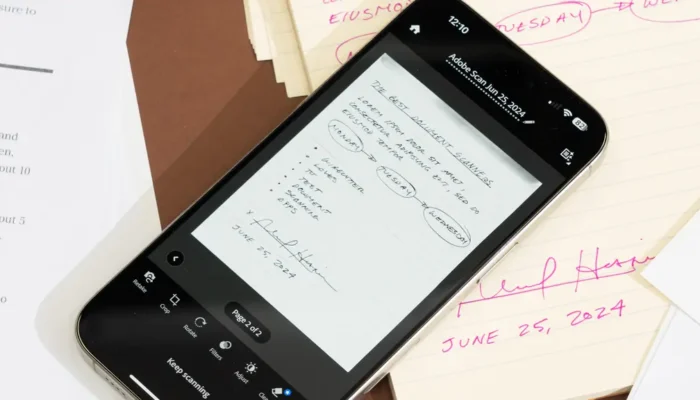 sure to
and
en,
out 10
put 5
EIUSMOD
TUESDAY
JUNE 25, 2024
12:10
82
Adobe Scan Jun 25, 2024
THE BEST DOCUMENT SCANNERS
LOREM IPSUM DOLOR SIT AMET,
CONSECTETUR ADIPISCING ELIT, SED DO
EIUSMOD TEMPOR
MONDAY
TUESDAY
WEDNESDAY
• WIRECUTTER
• LOVES
• TO
• TEST
• DOCUMENT
• SCANNING
• APPS
X
JUNE 25, 2024
Page 2 of 2
Retake
Crop
Rotate
Filters
Adjust
Keep scanning